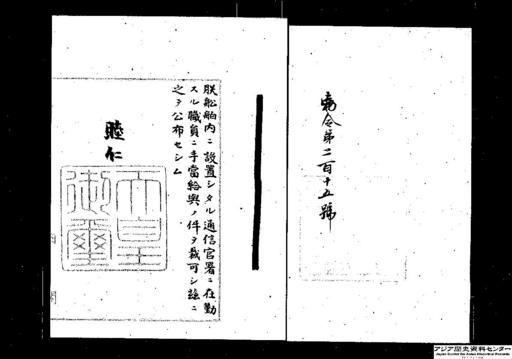 勅令第二百十五號
朕船舶内ニ設置シタル通信官署ニ在勤
スル職員ニ手當給與ノ件ヲ裁可シ玆ニ
之ヲ公布セシム
睦仁
天皇
御璽
アジア歴史資料センター
Japan Center for Asian Historical Records